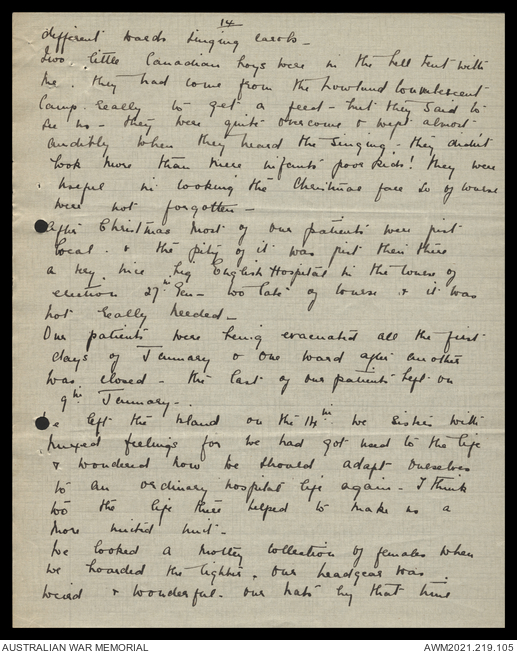 14
different wards singing carols -
Two little Canadian boys were in the bell tent with
me. they had come from the Lowland Convalescent
Camp. really to get a feed - but they said to
see us - they were quite overcome & wept almost
audibly when they heard the singing - they didn't
look more than mere infants poor kids! they were
useful in cooking the Christmas fare so of course
were not forgotten -
After Christmas most of our patients were just
local. & the pity of it was just then there
a very nice big English Hospital in the course of
erection 27th Gen - too late of course & it was
not really needed -
Our patients were being evacuated all the first
days of January & one ward after another
was closed - the last of our patients left on
9th January -
We left the Island on the 14th. We Sisters with
mixed feelings for we had got used to the life
& wondered how we should adapt ourselves
to an ordinary hospital life again - I think
too the life there helped to make us a
more united unit -
We looked a motley collection of females when
we boarded the lighter. our headgear was
weird & wonderful. our hats by that time
AUSTRALIAN WAR MEMORIAL
AWM2021.219.105